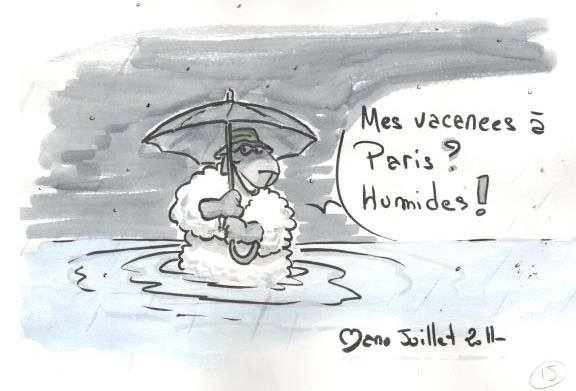 Mes vacances à
Paris?
Humides!
Mano Juillet 2011
15